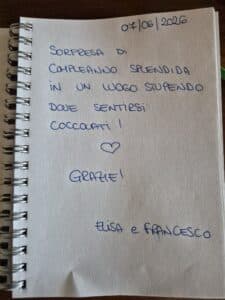 07/06/2026
SORPRESA DI
COMPLEANNO SPLENDIDA
IN UN LUOGO STUPENDO
DOVE SENTIRSI
COCCOLATI!
♡
GRAZIE!
ELISA e FRANCESCO